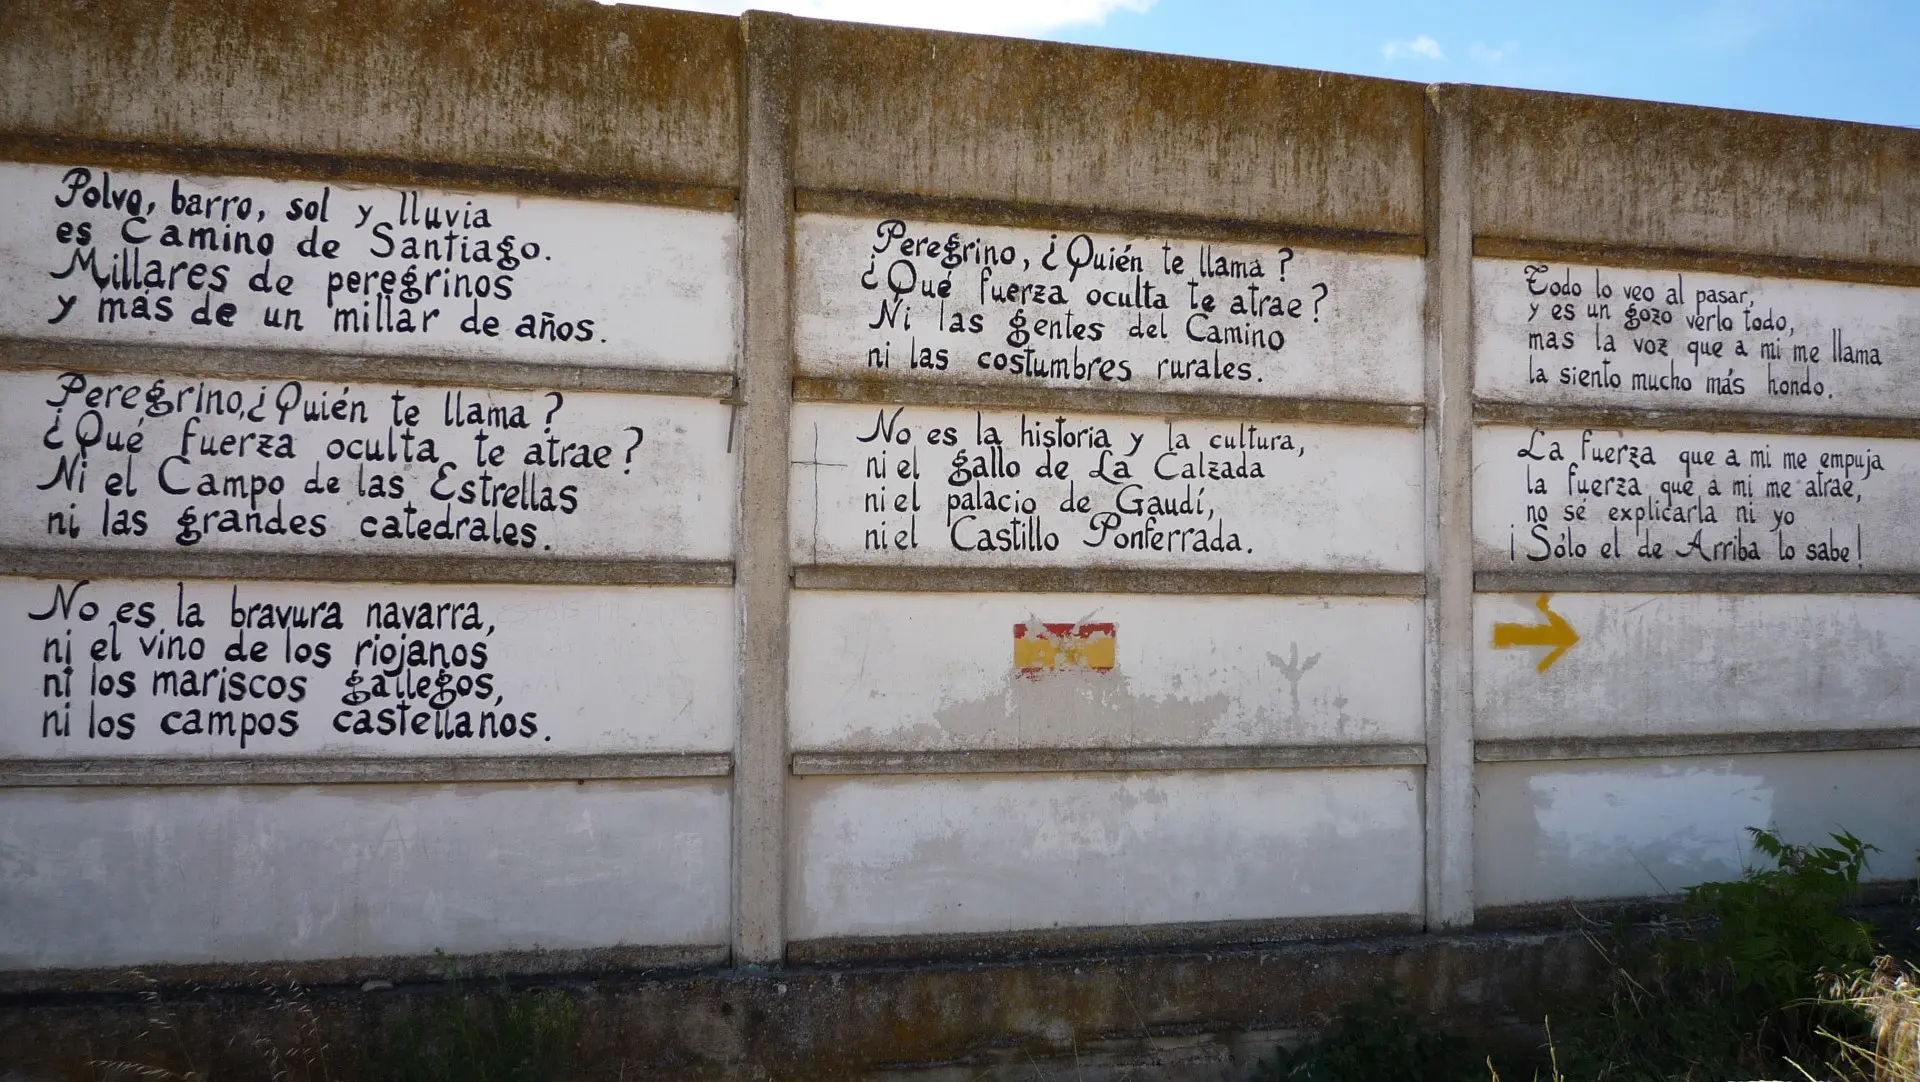 Polvo, barro, sol y lluvia
es Camino de Santiago.
Millares de peregrinos
y más de un millar de años.
Peregrino, ¿Quién te llama?
¿Qué fuerza oculta te atrae?
Ni el Campo de las Estrellas
ni las grandes catedrales.
No es la bravura navarra,
ni el vino de los riojanos
ni los mariscos gallegos,
ni los campos castellanos.
Peregrino, ¿Quién te llama?
¿Qué fuerza oculta te atrae?
Ni las gentes del Camino
ni las costumbres rurales.
No es la historia y la cultura,
ni el gallo de La Calzada
ni el palacio de Gaudí,
ni el Castillo Ponferrada.
Todo lo veo al pasar,
y es un gozo verlo todo,
mas la voz que a mi me llama
la siento mucho más hondo.
La fuerza que a mi me empuja
la fuerza que a mi me atrae,
no sé explicarla ni yo
¡Sólo el de Arriba lo sabe!